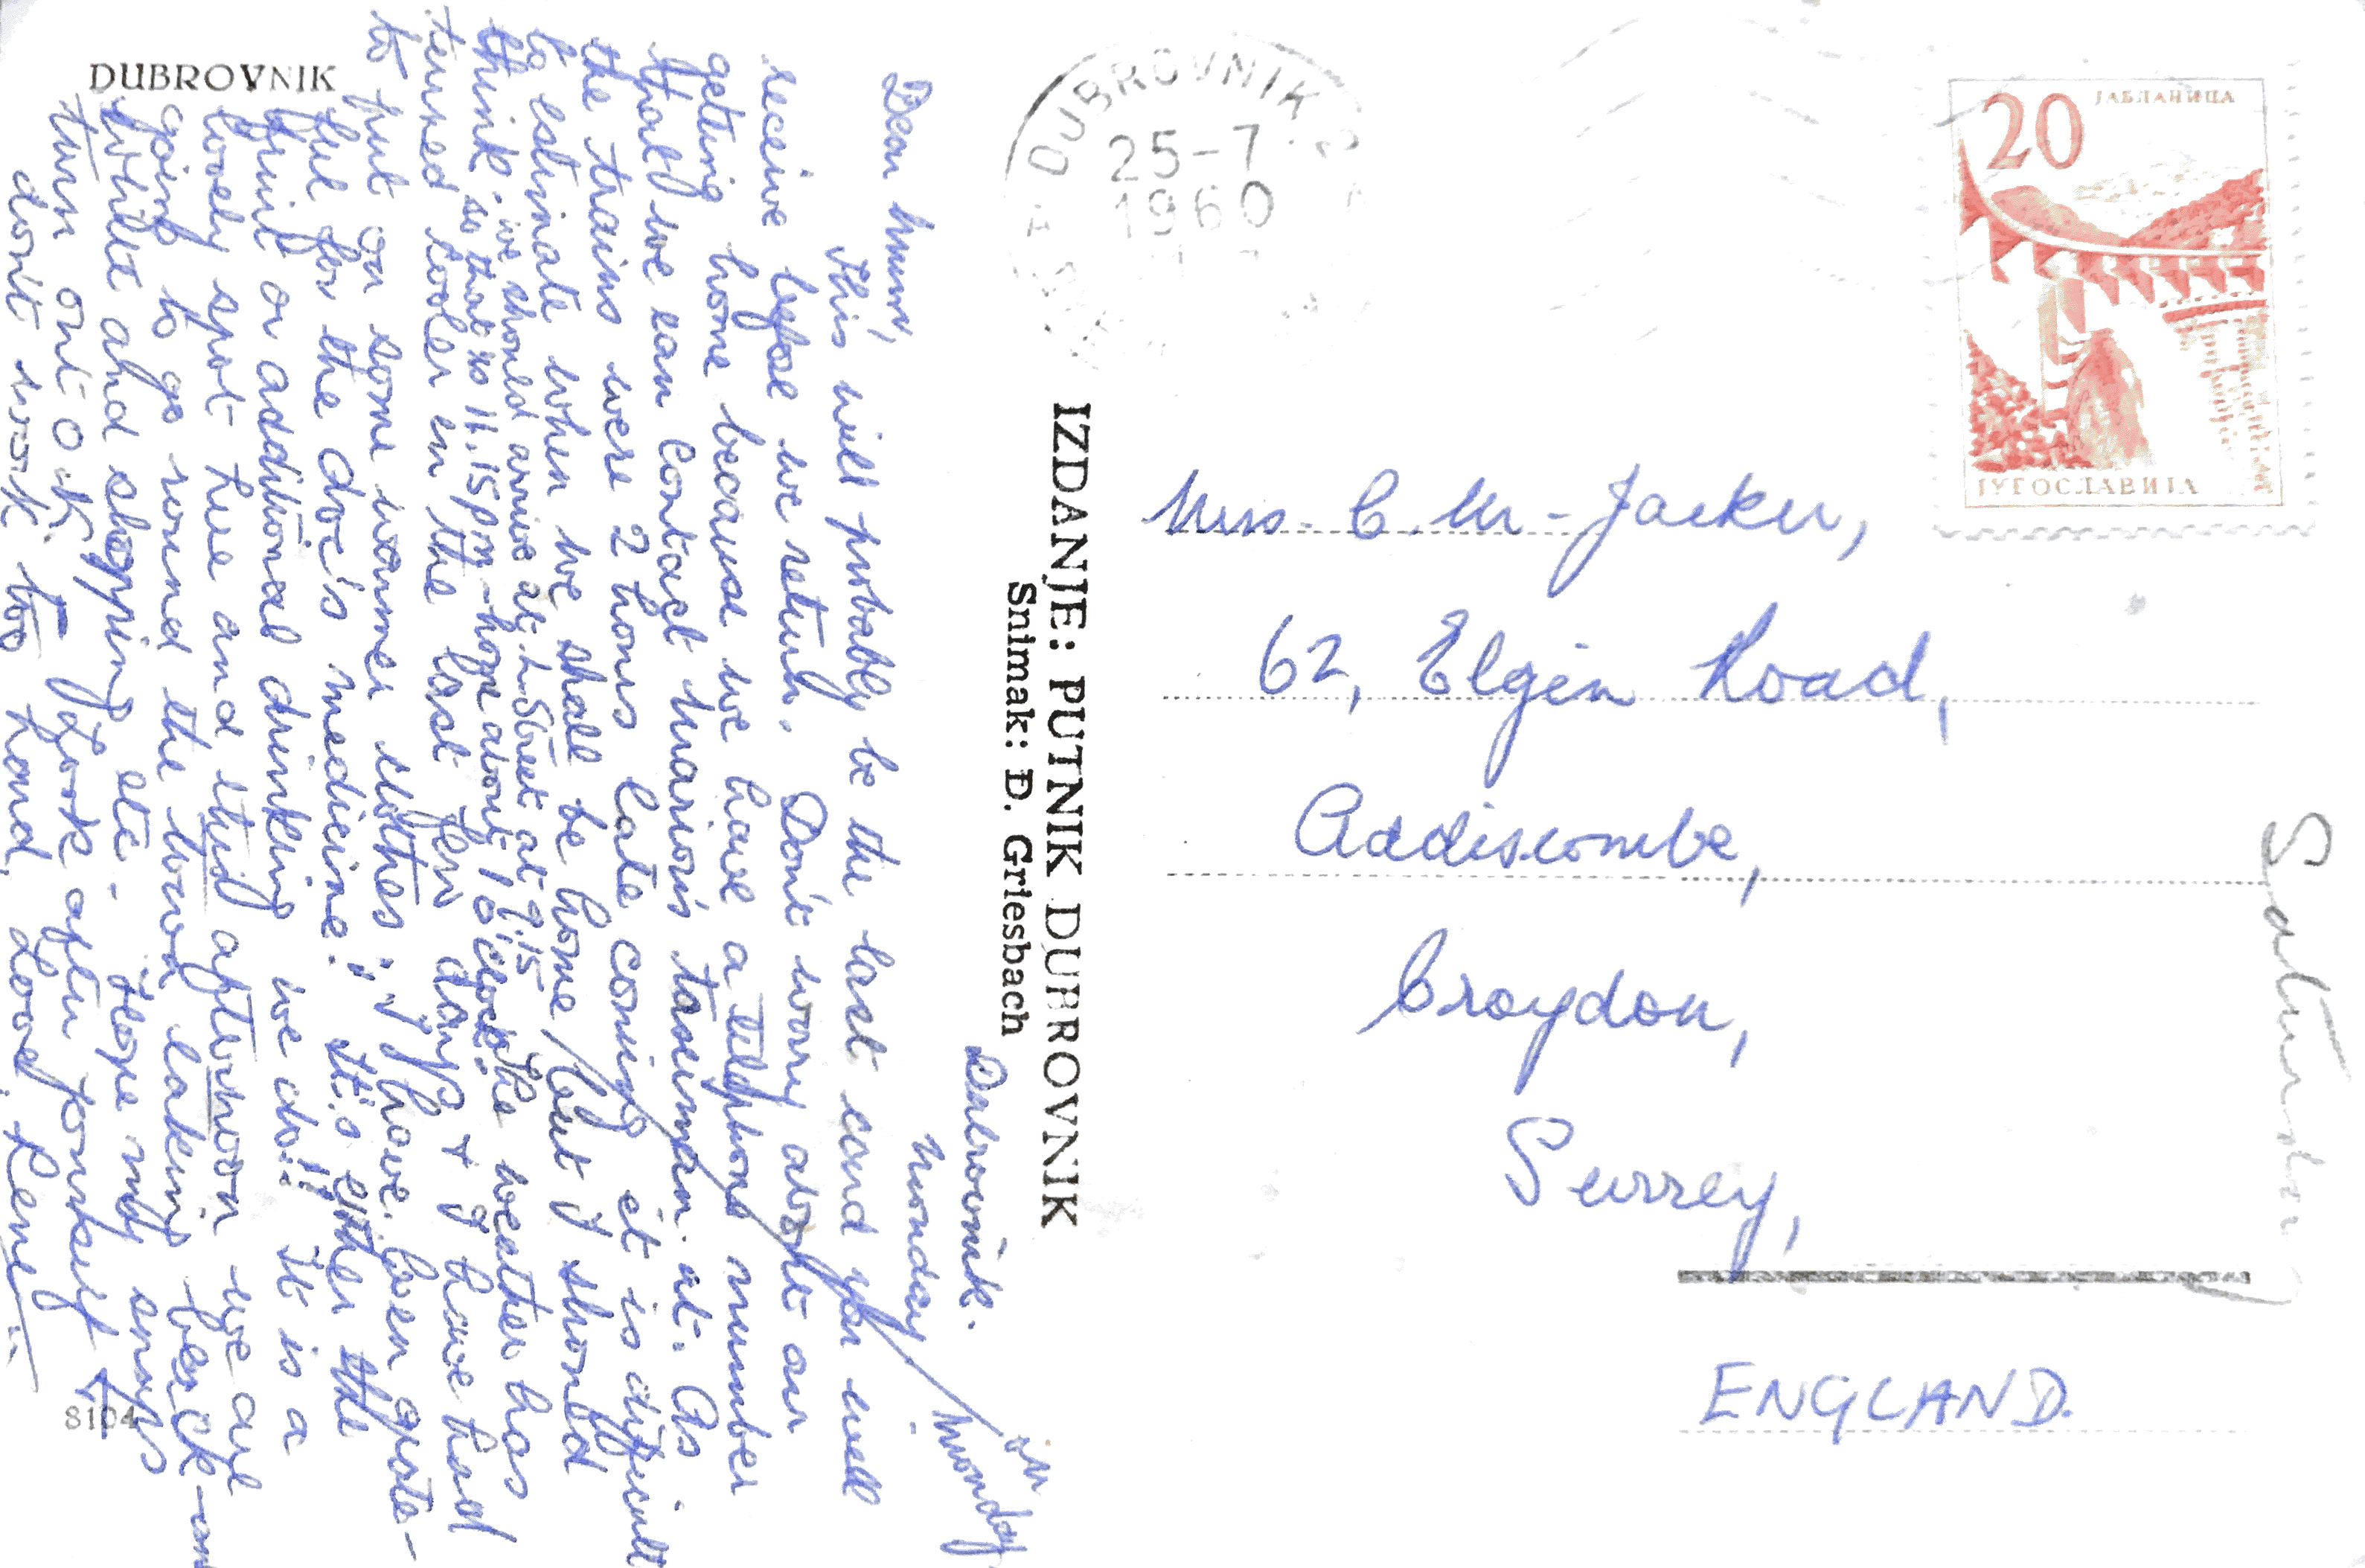 DUBROVNIK
Dubrovnik.
Monday
on Monday
Dear Mum,
This will probably be the last card you will
receive before we return. Don't worry about our
getting home because we have a telephone number
that we can contact Marion's taximan at. As
the trains were 2 hours late coming it is difficult
to estimate when we shall be home, but I should
think we should arrive at L. Street at 9.15
so that is 11.15 pm - hope about 1 o'clock. The weather has
turned cooler in the last few days & I have had
to put on some warmer clothes; I have been grate-
ful for the doc's medicine! It's either the
fruit or additional drinking we do!! It is a
lovely spot here and this afternoon we are
going to go round the town taking
whilst and shopping etc - Hope my snaps
turn out O.K. Look after yourself &
don't work too hard, Love, Rene.
8104
IZDANJE: PUTNIK DUBROVNIK
Snimak: D. Griesbach
DUBROVNIK 2
25-7
1960
20
ЈАБЛАНИЦА
ЈУГОСЛАВИЈА
Mrs. C. M. Jacker,
62, Elgin Road,
Addiscombe,
Croydon,
Surrey,
ENGLAND.
Saturday